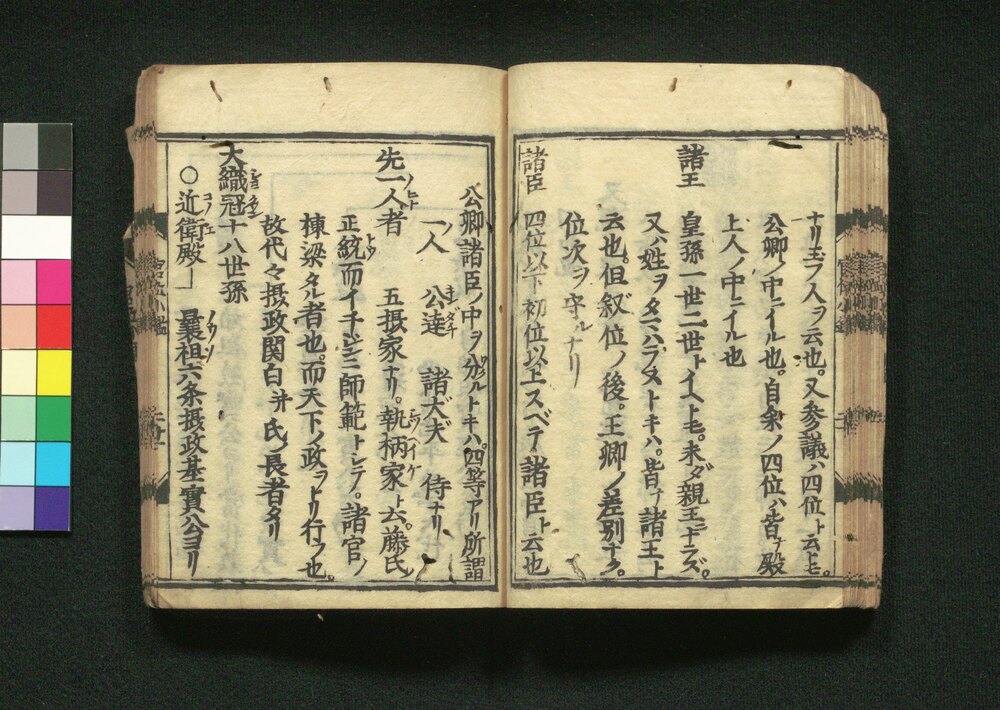 ナリ玉フ人ヲ云也。又参議ハ四位ト云トモ。
公卿ノ中ニイル也。自余ノ四位ハ皆ナ殿
上人ノ中ニイル也
諸王　皇孫一世二世トイヘトモ。未ダ親王ニナラズ。
又ハ姓ヲタマハラヌトキハ。皆ナ諸王ト
云也。但叙位ノ後。王卿ノ差別ナク。
位次ヲ守ルナリ
諸臣　四位以下初位以上スベテ諸臣ト云也
公卿諸臣ノ中ヲ分ルトキハ。四等アリ所謂
一ノ人　公達　諸大夫　侍ナリ。
先一ノ人者　五摂家ナリ。執柄家ト云。藤氏ノ
正統而イ千 師範トシテ。諸官ノ
棟梁タル者也。而天下ノ政ヲトリ行フ也。
故代々摂政関白并氏ノ長者タリ
大織冠十八世孫
〇近衛殿　曩祖六条摂政基實公ヨリ